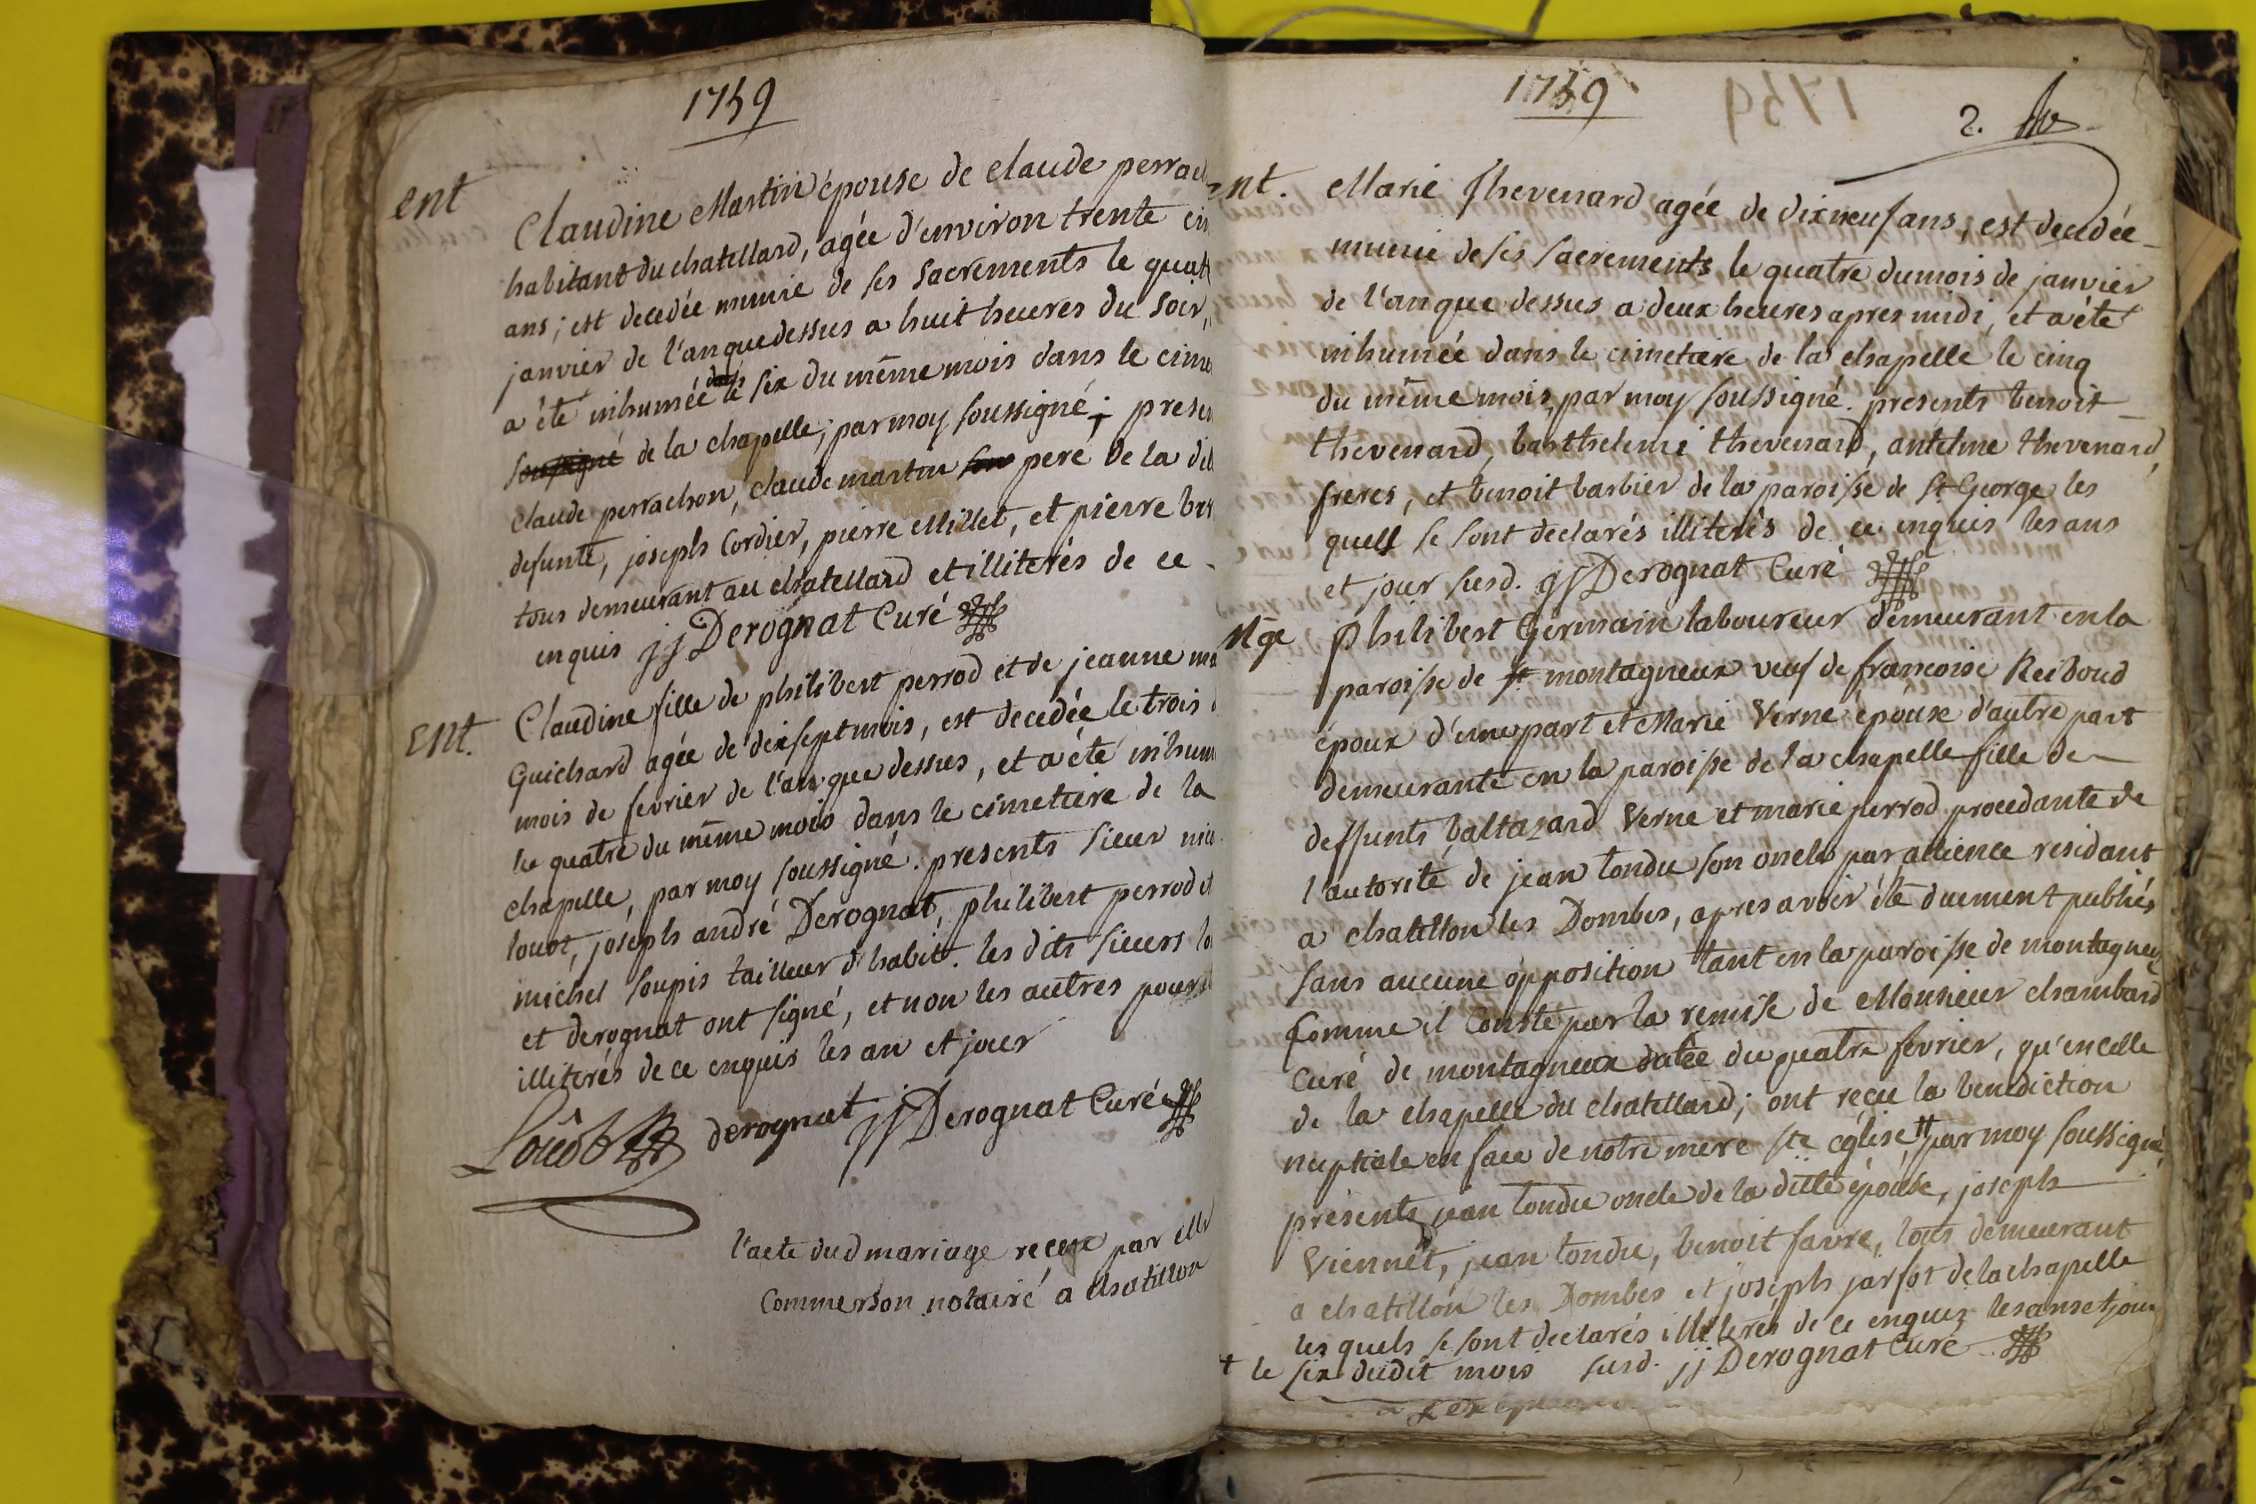 1759
ent
Claudine Martin épouse de claude perrach
habitant du chatellard, agée d'environ trente cin
ans; est decedée munie de ses sacrements le quatr
janvier de l'an que dessus a huit heures du soir,
a été inhumée le six du même mois dans le cime
de la chapelle; par moy soussigné; presen
claude perrachon, claude martin son pere de la dit
defunte, joseph Cordier, pierre Millet, et pierre
tous demeurant au chatellard et illiterés de ce
enquis jj Derognat Curé
ent.
Claudine fille de philibert perrod et de jeanne ma
Guichard agée de dixsept mois, est decedée le trois d
mois de fevrier de l'an que dessus, et a été inhum
le quatre du même mois dans le cimetiere de la
chapelle, par moy soussigné. presents sieur nic
louot, joseph andré Derognat, philibert perrod et
michel soupis tailleur d'habit. les dits sieurs lo
et derognat ont signé, et non les autres pour
illiterés de ce enquis les an et jour
Louôt derognat jj Derognat Curé
l'acte dud mariage receu par Mr
Commerson notaire a chatillon
1759
2.
nt.
Marie Thevenard agée de dixneuf ans, est decedée
munie de ses sacrements le quatre du mois de janvier
de l'an que dessus a deux heures apres midi, et a été
inhumée dans le cimetiere de la chapelle le cinq
du même mois, par moy soussigné. presents benoit
thevenard, barthelemi thevenard, antelme thevenard,
freres, et benoit barbier de la paroisse de St George les
quels se sont declarés illiterés de ce enquis les ans
et jour susd. jj Derognat Curé
Mge
Philibert Germain laboureur demeurant en la
paroisse de st montagneux veuf de francoise Reiboud
époux d'une part et Marie Verne épouse d'autre part
demeurante en la paroisse de la chapelle fille de
deffunts baltazard Verne et marie perrod procedante de
l'autorité de jean tondu son oncle par alience residant
a chatillon les Dombes, apres avoir été duement publiés
sans aucune opposition tant en la paroisse de montagneux
Comme il Conste par la remise de Monsieur chambard
Curé de montagneux datée du quatre fevrier, qu'en celle
de la chapelle du chatellard; ont reçu la benediction
nuptiale en face de notre mere ste église par moy soussigné,
presents jean tondu oncle de la ditte épouse, joseph
Viennet, jean tondu, benoit favre, tous demeurant
a chatillon les Dombes et joseph jarfot de la chapelle
les quels se sont declarés illiterés de ce enquis les ans et jour
+ le six dudit mois susd. jj Derognat Curé